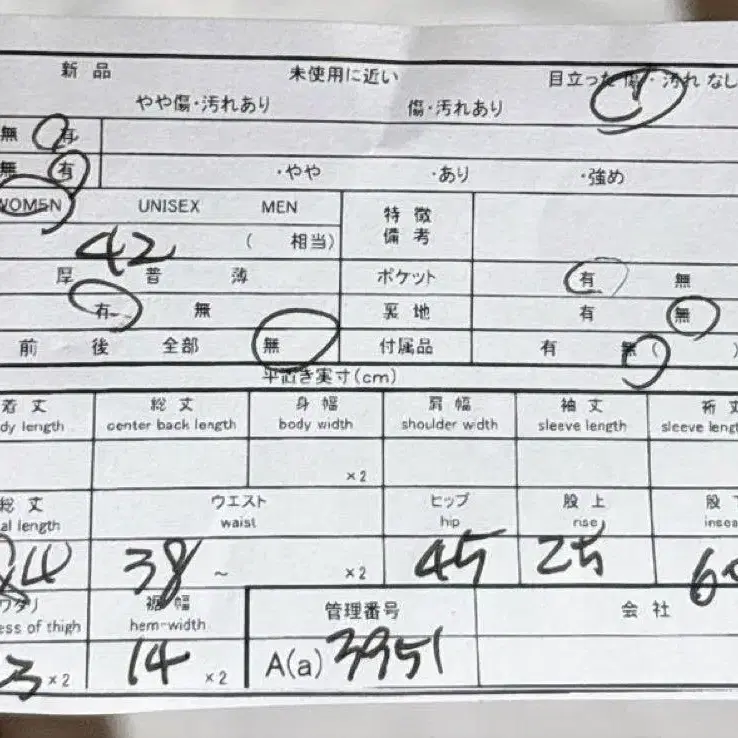 新品 未使用に近い 目立った傷・汚れなし
やや傷・汚れあり 傷・汚れあり
無 有
無 有 ・やや ・あり ・強め
WOMEN UNISEX MEN 特徴
備考
42 ( 相当)
厚 普 薄 ポケット 有 無
有 無 裏地 有 無
前 後 全部 無 付属品 有 無 ( )
平置き実寸(cm)
着丈 総丈 身幅 肩幅 袖丈 裄丈
dy length center back length body width shoulder width sleeve length sleeve leng
×2
総丈 ウエスト ヒップ 股上 股下
al length waist hip rise insea
38 ~ ×2 45 25
ワタリ 裾幅 管理番号 会社
ess of thigh hem-width
3 ×2 14 ×2 A(a) 3951